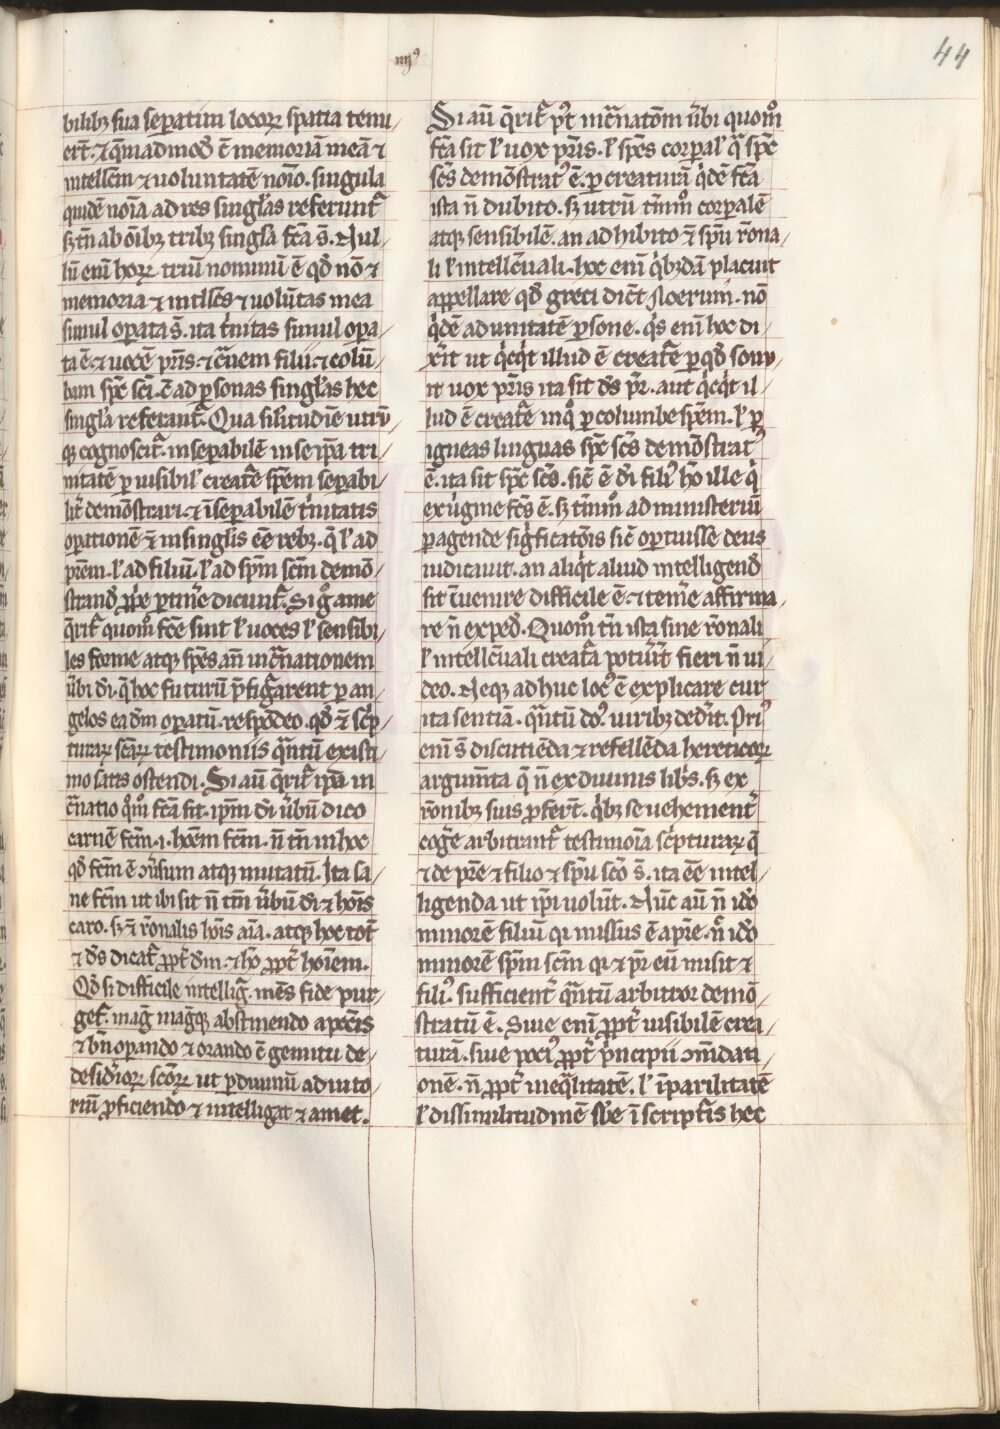 iiij⁹
44
bilibꝫ sua seꝑatim locoꝝ spatia tenu/
ert̄. ⁊ q̄madmoð c̄ memoriā meā ⁊
intellc̄m ⁊ uoluntatē noīo. singula
quidē noīa ad res singl̓as referunt᷑
sꝫ tn̄ ab oībꝫ tribꝫ singl̓a fc̄a s̄. Nul/
lū enī hoꝝ triū nominū ē qð nō ⁊
memoria ⁊ intll̓cs̄ ⁊ uolūtas mea
simul oꝑata s̄. ita t̓nitas simul oꝑa/
ta ē ⁊ uocē pr̄is. ⁊ c̄nem filii. ⁊ colū/
bam spc̄ sc̄i. c̄ ad ꝑsonas singl̓as hec
singl̓a referant᷑. Qua sil̓itudīe utrū/
qꝫ cognoscit᷑. inseꝑabilē in se ip̄a tri/
nitatē ꝑ uisibil̓ creat̄e spēm seꝑabi/
lit̓ demōstrari. ⁊ īseꝑabilē t̓nitatis
oꝑationē ⁊̄ in singl̓is ēē rebꝫ. q̄ l̓ ad
pr̄em. l̓ ad filiū. l̓ ad sp̄m sc̄m demō/
strand̄ ꝓp̓e ꝑtin̓e dicunt᷑. Si g̊ a me
q̄rit᷑ quom̊ fc̄e sint l̓ uoces l̓ sensibi/
les forme atqꝫ spēs an̄ inc̄nationem
ūbi di. q̄ hoc futurū p̄fig᷑arent ꝑ an/
gelos ea dm̄ oꝑatū. respōdeo. qð ⁊̄ sc̓p/
turaꝝ sc̄aꝝ testimoniis q᷑ntū existi/
mo satis ostendi. Si aū q̄rit᷑ ip̄a in
c᷑natio q̊m̊ fc̄a sit. ip̄m di ūbū dico
carnē fc̄m .i. hoēm fc̄m. n̄ tn̄ in hoc
qð fc̄m ē ꝯūsum atqꝫ mutatū. Ita sa/
ne fc̄m ut ibi sit n̄ tm̄ ūbū di ⁊ hoīs
caro. sꝫ ⁊̄ rōnalis hoīs aīa. atqꝫ hoc tot̄
⁊ ds̄ dicat᷑ ꝓpt̓ dm̄. ⁊ hō ꝓpt̓ hoīem.
Qð si difficile intellig᷑. mēs fide pur/
get᷑. mag̓ mag̓qꝫ abstinendo a pcc̄is
⁊ bn̄ oꝑando ⁊ orando c̄ gemitu de/
desid̓ioꝝ sc̄oꝝ ut ꝑ diuinū adiuto/
riū ꝓficiendo ⁊ intelligat ⁊ amet.
Si aū q̄rit᷑ p̓t inc᷑natōm ūbi quom̊
fc̄a sit l̓ uox pr̄is. l̓ spēs corꝑal̓ q᷑ spc̄
sc̄s demōstrat⁹ ē. ꝑ creaturā q̓dē fc̄a
ista n̄ dubito. sꝫ utrū tm̄m̊ corꝑalē
atqꝫ sensibilē. an adhibito ⁊̄ sp̄u rōna/
li l̓ intellc̄uali. hoc enī q̓bꝫdā placuit
appellare qð greci dic̄t Noerum. nō
q̓dē ad unitatē ꝑsone. q̓s enī hoc di/
x̓it ut q̓cq̓t illud ē creat̄e ꝑ qð sonu/
it uox pr̄is ita sit ds̄ pr̄. aut q̓cq̓t il/
lud ē creat̄e in q̊ ꝑ columbe spēm. l̓ ꝑ
igneas linguas spc̄ sc̄s demōstrat⁹
ē. ita sit spc̄ sc̄s. sic̄ ē di fili⁹ hō ille q̓
ex ūgine fc̄s ē. sꝫ tm̄m̊ ad ministeriū
ꝑagende sig̓ficatōis sic̄ oꝑtuisse deus
iudicauit. an aliq̓t aliud intelligend̄
sit īuenire difficile ē. ⁊ tem̓e affirma/
re n̄ exped̄. Quom̊ tn̄ ista sine rōnali
l̓ intellc̄uali creat᷑a potu̓it fieri n̄ ui/
deo. Neqꝫ adhuc loc⁹ ē explicare cur
ita sentiā. q᷑ntū do⁹ uiribꝫ ded̓it. Pri⁹
enī s̄ discutiēda ⁊ refellēda hereticoꝝ
argum̄ta q̄ n̄ ex diuinis lib̓s. sꝫ ex
rōnibꝫ suis ꝓfert̄. q̓bꝫ se uehement᷑
cog̓e arbitrant᷑ testimoīa sc̓pturaꝝ q̄
⁊ de pr̄e ⁊ filio ⁊ sp̄u sc̄o s̄. ita ēē intel/
ligenda ut ip̄i uolūt. Nūc aū n̄ id̊
minorē filiū qi missus ē a pr̄e. n̄ id̊
minorē sp̄m sc̄m qi ⁊ pr̄ eū misit ⁊
fili⁹. sufficient᷑ q᷑ntū arbitror demō/
stratū ē. Siue enī ꝓpt̓ uisibilē crea/
turā. siue poci⁹ ꝓpt̓ p̓ncipii ꝯm̄dati/
onē. n̄ ꝓpt̓ ineq᷑litatē. l̓ īparilitatē
l̓ dissimilitudinē sb̓e ī scriptis hec